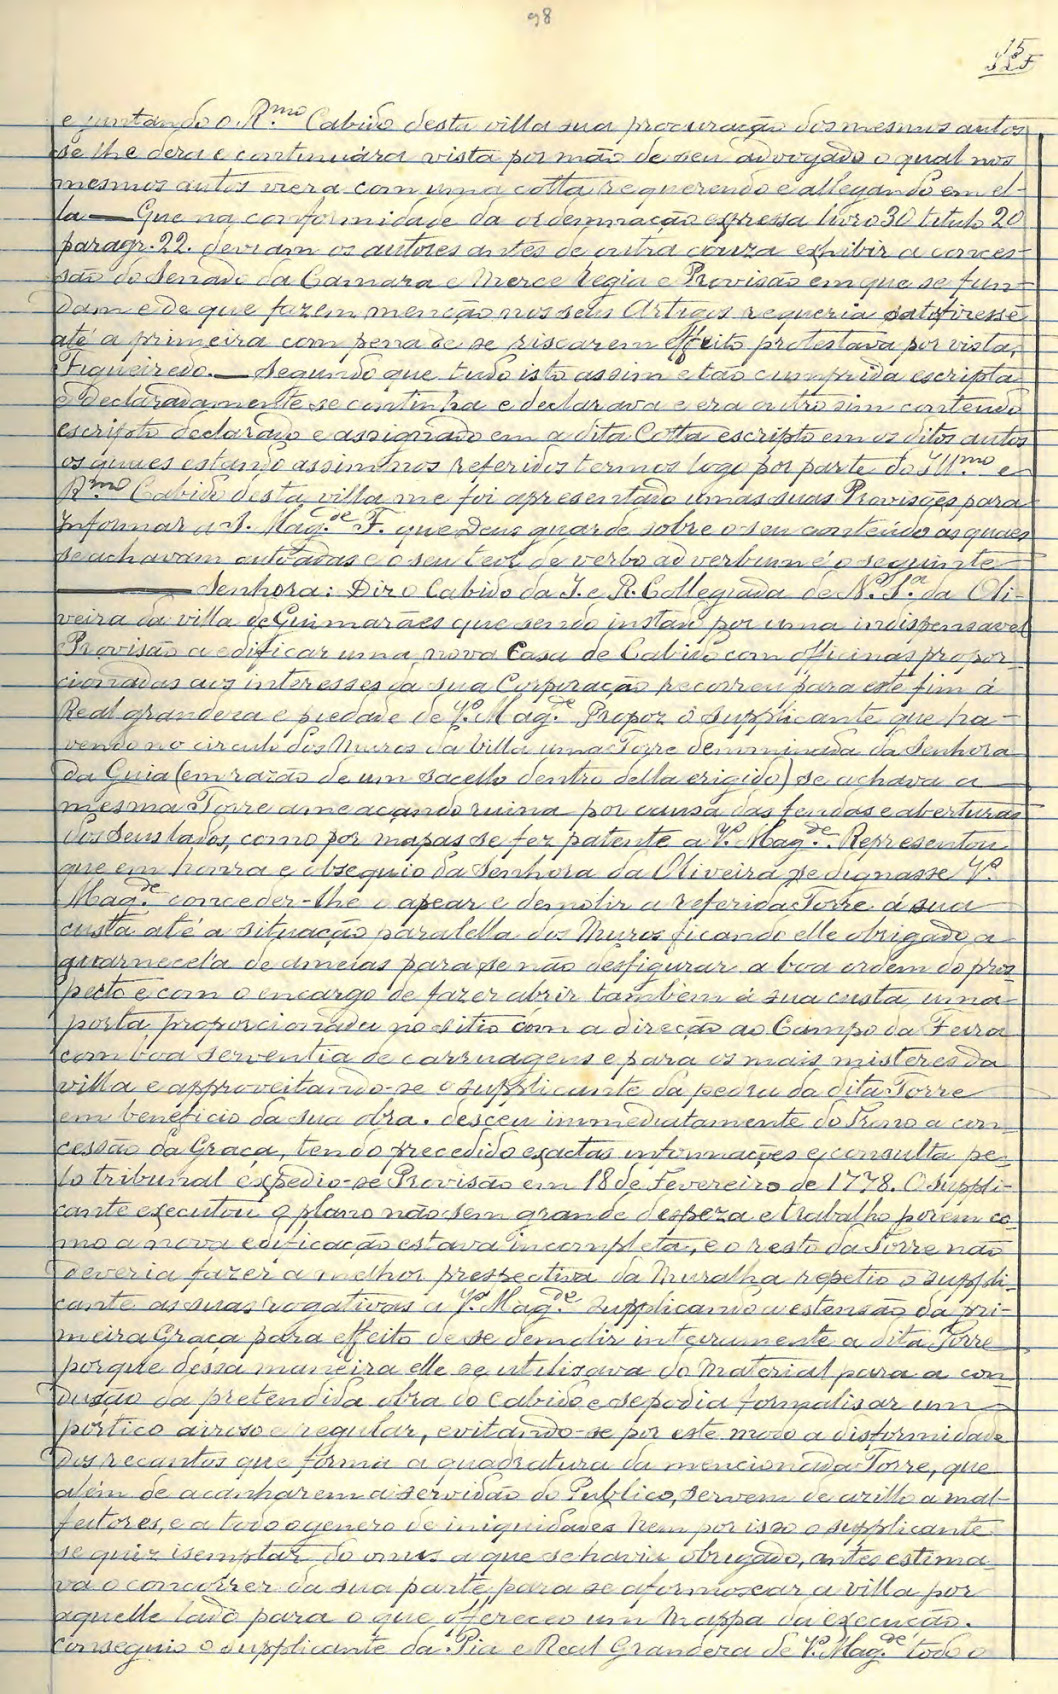 98
15
e juntando o R.mo Cabido desta villa sua procuração dos mesmos autos
se lhe dera e continuára vista por mão de seu advogado o qual nos
mesmos autos viera com uma cotta requerendo e allegando em el-
la — Que na conformidade da ordennação expressa livro 30 titulo 20
paragr. 22. deviam os autores antes de outra couza exhibir a conces-
são do Senado da Camara e Merce Regia e Provisão em que se fun-
dam e de que fazem menção nos seus Artigos requeria satisfizesse
até a primeira com pena de se riscarem effeito protestava por vista,
Figueiredo. — Segundo que tudo isto assim e tão cumprida escripta
e declaradamente se continha e declarava e era outro sim contendo
escripto declarado e assignado em a dita Cotta escripto em os ditos autos
os quaes estando assim nos referidos termos logo por parte do Ill.mo e
R.mo Cabido desta villa me foi apresentado umas suas Provisões para
Informar a S. Mag.de F. que Deus guarde sobre o seu conteúdo as quaes
se achavam autoadas e o seu teor de verbo ad verbum é o seguinte
— Senhora: Diz o Cabido da I. e R. Collegiada de N. S.a da Oli-
veira da villa de Guimarães que sendo instado por uma indispensavel
Provisão a edificar uma nova Casa de Cabido com officinas propor-
cionadas aos interesses da sua Corporação recorreu para este fim á
Real grandeza e piedade de V.a Mag.de Propoz o supplicante que ha-
vendo no circulo dos Muros da Villa uma Torre denominada da Senhora
da Guia (em razão de um sacello dentro della erigido) se achava a
mesma Torre ameaçando ruina por causa das fendas e aberturas
dos seus lados, como por mapas se fez patente a V.a Mag.de. Representou
que em honra e obsequio da Senhora da Oliveira se dignasse V.a
Mag.de conceder-lhe o apear e demolir a referida Torre á sua
custa até a situação paralella dos Muros ficando elle obrigado a
guarnecel'a de ameias para se não desfigurar a boa ordem do pros-
pecto e com o encargo de fazer abrir tambem á sua custa uma
porta proporcionada no sitio com a direção ao Campo da Feira
com boa serventia de carruagens e para os mais misteres da
villa e approveitando-se o supplicante da pedra da dita Torre
em beneficio da sua obra. desceu immediatamente do Trono a con-
cessão da Graça, tendo precedido exactas informações e consulta pe-
lo tribunal expedio-se Provisão em 18 de Fevereiro de 1778. O suppli-
cante executou o plano não sem grande despeza e trabalho porém co-
mo a nova edificação estava incompleta, e o resto da Torre não
deveria fazer a melhor prespectiva da Muralha repetio o suppli-
cante as suas rogativas a V.a Mag.de supplicando a estensão da pri-
meira Graça para effeito de se demolir inteiramente a dita Torre
porque dessa maneira elle se utilisava do material para a con-
dusão da pretendida obra do Cabido e se podia formalisar um
portico airoso e regular, evitando-se por este modo a disformidade
dos recantos que forma a quadratura da mencionada Torre, que
além de acanharem a servidão do Publico, servem de azillo a mal-
feitores, e a todo o genero de iniquidades Nem por isso o supplicante
se quiz isemptar do onus a que se havia obrigado, antes estima-
va o concorrer da sua parte para se aformosear a villa por
aquelle lado para o que offereceo um Mappa da execução.
Conseguio o supplicante da Pia e Real Grandeza de V.a Mag.de todo o